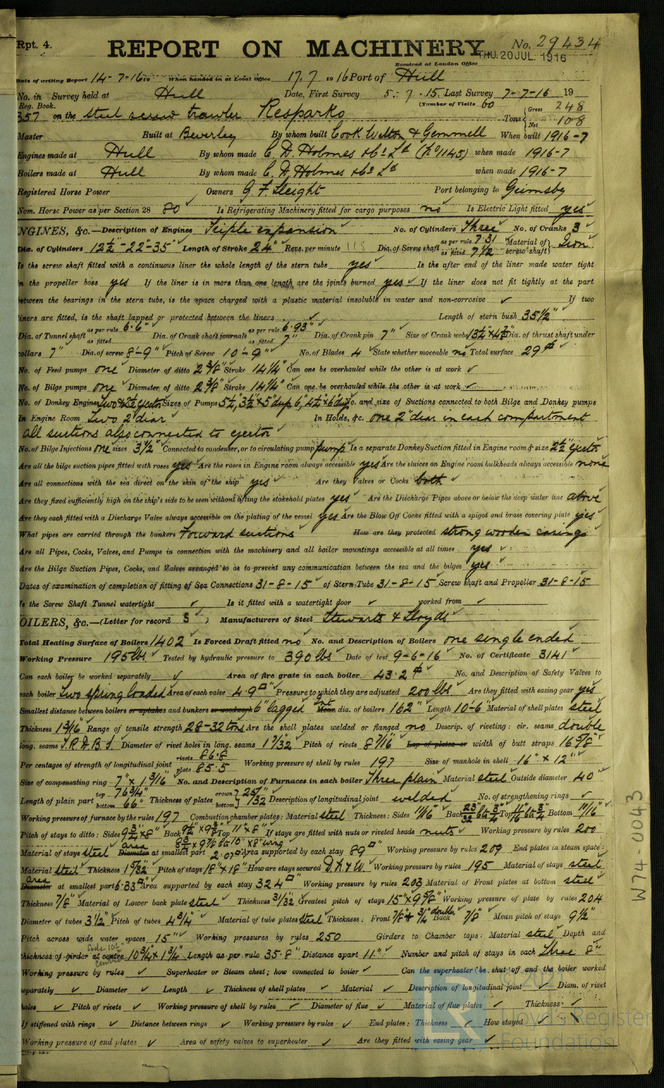 Rpt. 4.
REPORT ON MACHINERY
No. 29434
Received at London Office THU. 20 JUL. 1916
Date of writing Report 14-7-16 When handed in at Local Office 17.7.1916 Port of Hull
No. in Survey held at Hull Date, First Survey 5.7.15 Last Survey 7-7-16 19
Reg. Book. (Number of Visits 60
357 on the steel screw trawler Resparko Tons Gross 248 Net 108
Master Built at Beverley By whom built Cook Welton & Gemmell When built 1916-7
Engines made at Hull By whom made C. D. Holmes & Co Ld (No 1145) when made 1916-7
Boilers made at Hull By whom made C. D. Holmes & Co Ld when made 1916-7
Registered Horse Power Owners G. F. Sleight Port belonging to Grimsby
Nom. Horse Power as per Section 28 80 Is Refrigerating Machinery fitted for cargo purposes no Is Electric Light fitted yes
ENGINES, &c.—Description of Engines Triple expansion No. of Cylinders Three No. of Cranks 3
Dia. of Cylinders 12½-22-35 Length of Stroke 24" Revs. per minute 113 Dia. of Screw shaft as per rule 7.31 as fitted 7½ Material of screw shaft Iron
Is the screw shaft fitted with a continuous liner the whole length of the stern tube yes Is the after end of the liner made water tight
in the propeller boss yes If the liner is in more than one length are the joints burned yes If the liner does not fit tightly at the part
between the bearings in the stern tube, is the space charged with a plastic material insoluble in water and non-corrosive ✓ If two
liners are fitted, is the shaft lapped or protected between the liners ✓ Length of stern bush 35½"
Dia. of Tunnel shaft as per rule 6.6" as fitted Dia. of Crank shaft journals as per rule 6.93" as fitted 7" Dia. of Crank pin 7" Size of Crank webs 13½ x 4½ Dia. of thrust shaft under
collars 7" Dia. of screw 8-9" Pitch of Screw 10-9" No. of Blades 4 State whether moveable no Total surface 29
No. of Feed pumps one Diameter of ditto 2⅝ Stroke 14¼" Can one be overhauled while the other is at work ✓
No. of Bilge pumps one Diameter of ditto 2⅝ Stroke 14¼" Can one be overhauled while the other is at work ✓
No. of Donkey Engines Sizes of Pumps No. and size of Suctions connected to both Bilge and Donkey pumps
In Engine Room Two 2" diar In Holds, &c. one 2" diar in each compartment
all suctions also connected to ejector
No. of Bilge Injections one sizes 3½" Connected to condenser, or to circulating pump pump Is a separate Donkey Suction fitted in Engine room & size 2½" ejector
Are all the bilge suction pipes fitted with roses yes Are the roses in Engine room always accessible yes Are the sluices on Engine room bulkheads always accessible none
Are all connections with the sea direct on the skin of the ship yes Are they Valves or Cocks both
Are they fixed sufficiently high on the ship's side to be seen without lifting the stokehold plates yes Are the Discharge Pipes above or below the deep water line above
Are they each fitted with a Discharge Valve always accessible on the plating of the vessel yes Are the Blow Off Cocks fitted with a spigot and brass covering plate yes
What pipes are carried through the bunkers Forward suctions How are they protected strong wooden casings
Are all Pipes, Cocks, Valves, and Pumps in connection with the machinery and all boiler mountings accessible at all times yes
Are the Bilge Suction Pipes, Cocks, and Valves arranged so as to prevent any communication between the sea and the bilges yes
Dates of examination of completion of fitting of Sea Connections 31-8-15 of Stern Tube 31-8-15 Screw shaft and Propeller 31-8-15
Is the Screw Shaft Tunnel watertight ✓ Is it fitted with a watertight door ✓ worked from ✓
BOILERS, &c.—(Letter for record S) Manufacturers of Steel Stewarts & Lloyds
Total Heating Surface of Boilers 1402 Is Forced Draft fitted no No. and Description of Boilers one single ended
Working Pressure 195 lbs Tested by hydraulic pressure to 390 lbs Date of test 9-6-16 No. of Certificate 3141
Can each boiler be worked separately ✓ Area of fire grate in each boiler 43.2 No. and Description of Safety Valves to
each boiler Two spring loaded Area of each valve 4.9 Pressure to which they are adjusted 200 lbs Are they fitted with easing gear yes
Smallest distance between boilers or uptakes and bunkers or woodwork 6" lagged Mean dia. of boilers 162" Length 10-6 Material of shell plates steel
Thickness 1 3/16 Range of tensile strength 28-32 tons Are the shell plates welded or flanged no Descrip. of riveting: cir. seams double
long. seams T.R.D.B.S. Diameter of rivet holes in long. seams 1 7/32 Pitch of rivets 8 7/16 Lap of plates or width of butt straps 16⅝"
Per centages of strength of longitudinal joint rivets 86.8 plate 85.5 Working pressure of shell by rules 197 Size of manhole in shell 16" x 12"
Size of compensating ring 7" x 1 3/16 No. and Description of Furnaces in each boiler Three plain Material steel Outside diameter 40"
Length of plain part top 76¾" bottom 66" Thickness of plates crown bottom 25/32 Description of longitudinal joint welded No. of strengthening rings ✓
Working pressure of furnace by the rules 197 Combustion chamber plates: Material steel Thickness: Sides 11/16 Back Top Bottom 11/16
Pitch of stays to ditto: Sides Back Top 11" x 8" If stays are fitted with nuts or riveted heads nuts Working pressure by rules 200
Material of stays steel area at smallest part 2.07 Area supported by each stay 89 Working pressure by rules 209 End plates in steam space:
Material steel Thickness 1 5/32 Pitch of stays 18" x 18" How are stays secured D.N & W Working pressure by rules 195 Material of stays steel
area at smallest part 6.33 Area supported by each stay 324 Working pressure by rules 203 Material of Front plates at bottom steel
Thickness ⅞ Material of Lower back plate steel Thickness Greatest pitch of stays 15" x 9⅝ Working pressure of plate by rules 204
Diameter of tubes 3½" Pitch of tubes 4¾" Material of tube plates steel Thickness: Front Back ⅞ Mean pitch of stays 9½"
Pitch across wide water spaces 15" Working pressures by rules 250 Girders to Chamber tops: Material steel Depth and
thickness of girder at centre 10¾ x 1¾ Length as per rule 35.8 Distance apart 11" Number and pitch of stays in each Three 8"
Working pressure by rules ✓ Superheater or Steam chest; how connected to boiler ✓ Can the superheater be shut off and the boiler worked
separately ✓ Diameter ✓ Length ✓ Thickness of shell plates ✓ Material ✓ Description of longitudinal joint ✓ Diam. of rivet
holes ✓ Pitch of rivets ✓ Working pressure of shell by rules ✓ Diameter of flue ✓ Material of flue plates ✓ Thickness ✓
If stiffened with rings ✓ Distance between rings ✓ Working pressure by rules ✓ End plates: Thickness ✓ How stayed ✓
Working pressure of end plates ✓ Area of safety valves to superheater ✓ Are they fitted with easing gear ✓
W74-0043
Lloyd's Register
Foundation